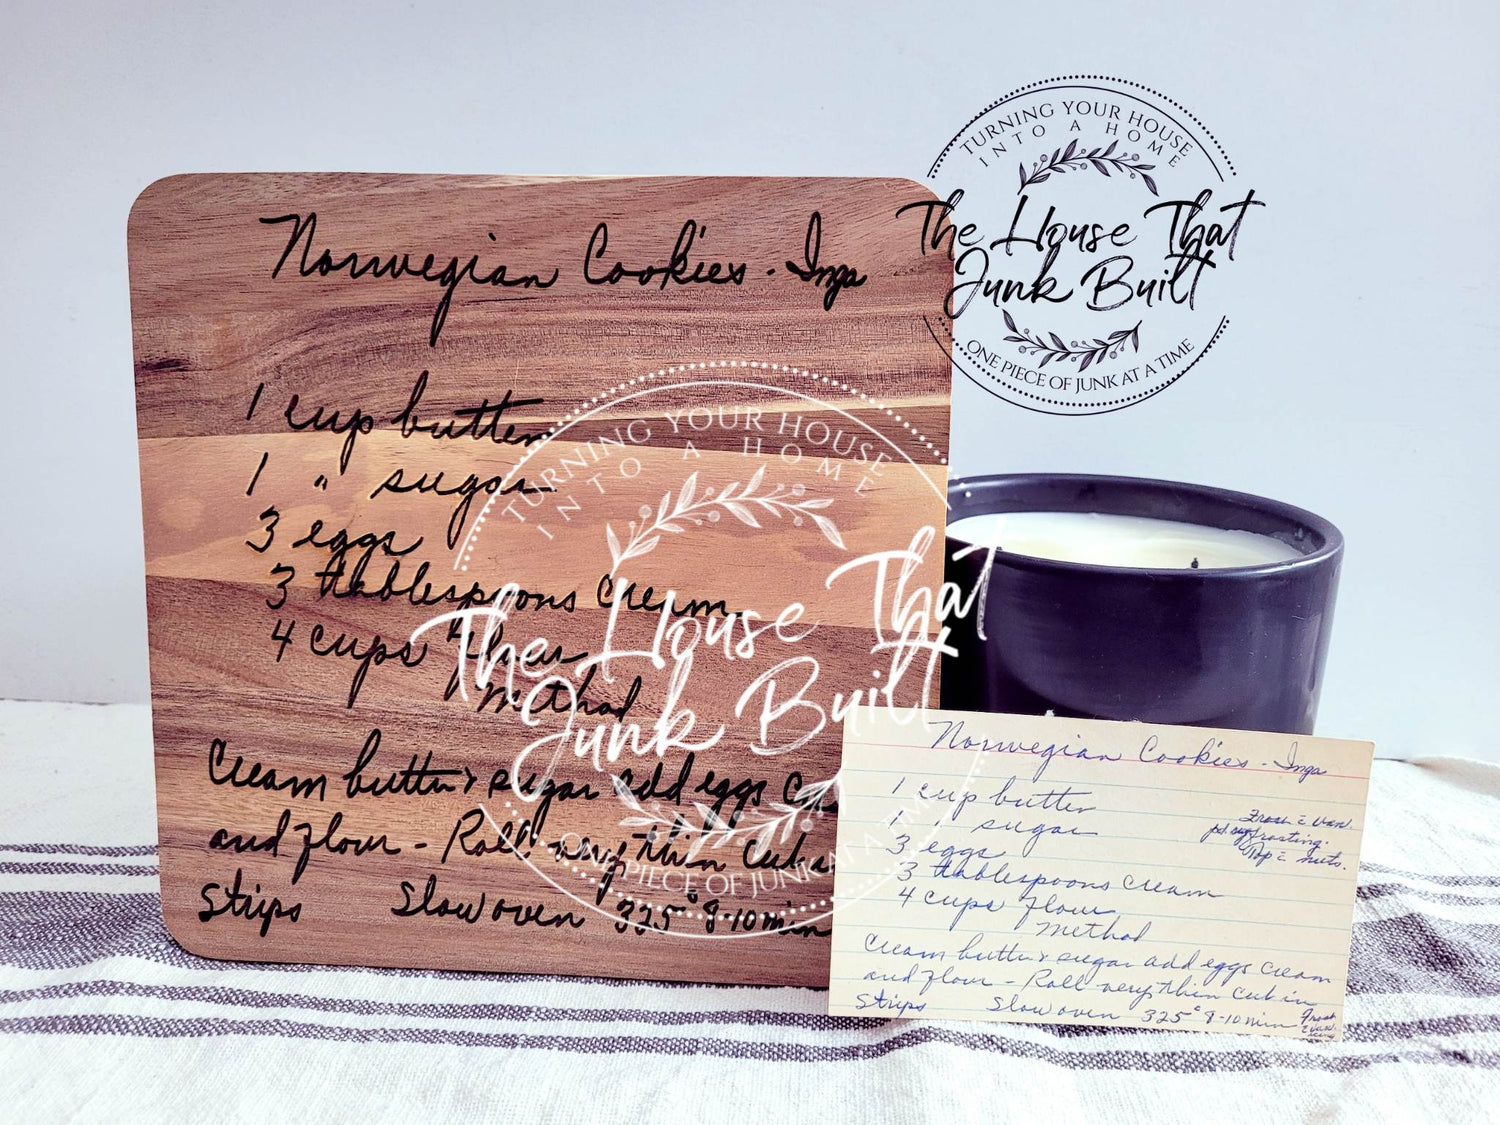 Norwegian Cookies - Inga
1 cup butter
1 " sugar
3 eggs
3 tablespoons cream
4 cups flour
Method
Cream butter & sugar add eggs
and flour - Roll very thin cut
strips Slow oven 325° 8-10 min
TURNING YOUR HOUSE
INTO A HOME
The House That
Junk Built
ONE PIECE OF JUNK AT A TIME
TURNING YOUR HOUSE
INTO A HOME
The House That
Junk Built
ONE PIECE OF JUNK AT A TIME
Norwegian Cookies - Inga
1 cup butter
1 " sugar
3 eggs
3 tablespoons cream
4 cups flour
Method
Cream butter & sugar add eggs cream
and flour - Roll very thin cut in
strips Slow oven 325° 8-10 min
frosting.
Top c̄ nuts.